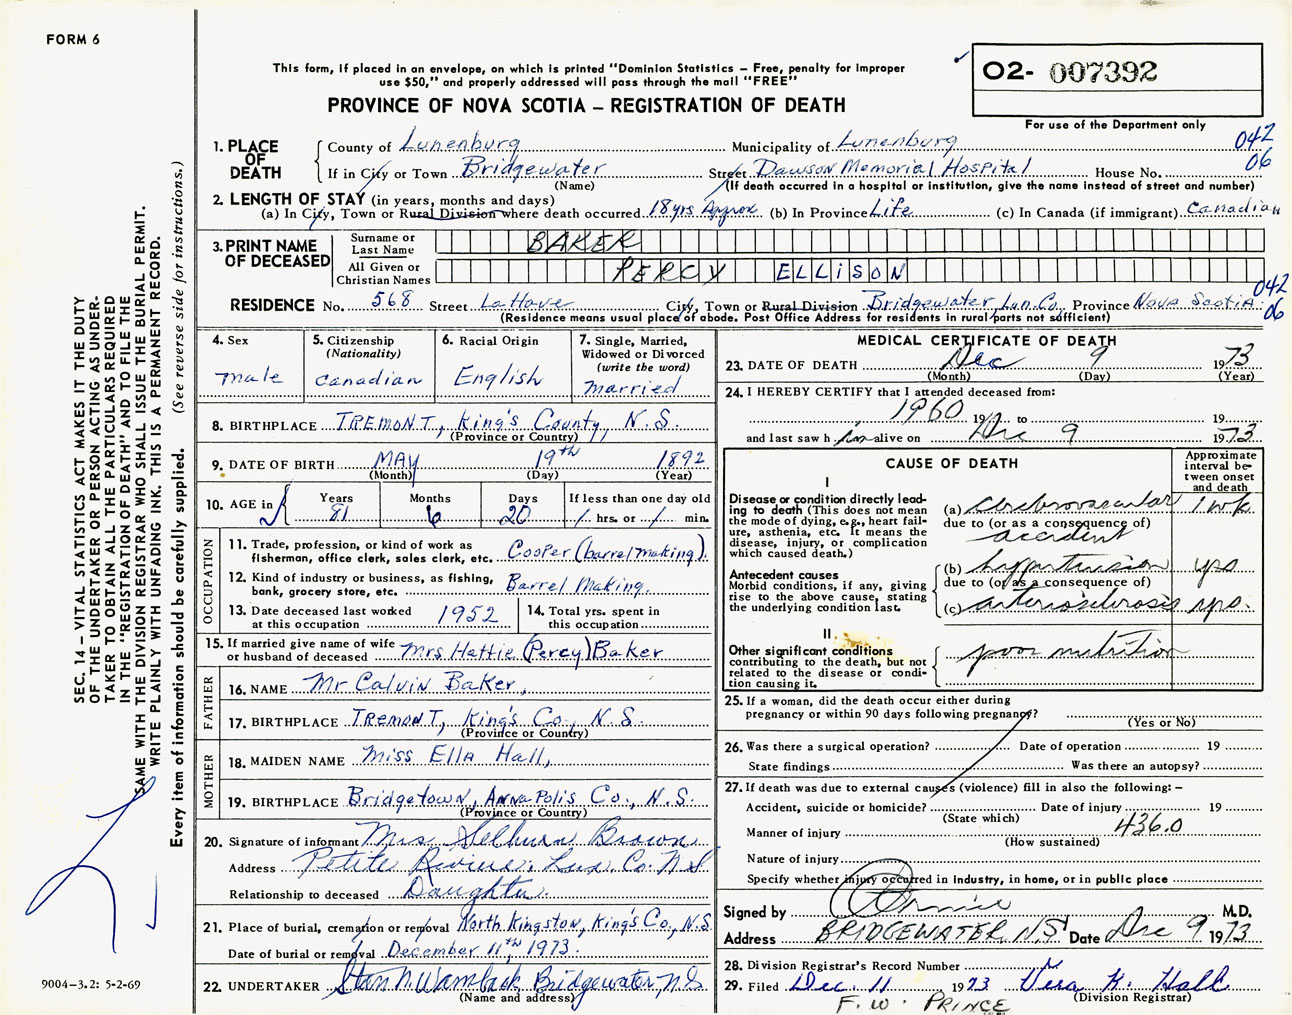 FORM 6
This form, if placed in an envelope, on which is printed "Dominion Statistics – Free, penalty for improper
use $50," and properly addressed will pass through the mail "FREE"
PROVINCE OF NOVA SCOTIA – REGISTRATION OF DEATH
O2- 007392
For use of the Department only
042
06
1. PLACE OF DEATH
County of Lunenburg Municipality of Lunenburg
If in City or Town Bridgewater Street Dawson Memorial Hospital House No.
(Name) (If death occurred in a hospital or institution, give the name instead of street and number)
2. LENGTH OF STAY (in years, months and days)
(a) In City, Town or Rural Division where death occurred 18 yrs Approx (b) In Province Life (c) In Canada (if immigrant) Canadian
3. PRINT NAME OF DECEASED
Surname or Last Name BAKER
All Given or Christian Names PERCY ELLISON
RESIDENCE No. 568 Street LaHave City, Town or Rural Division Bridgewater, Lun. Co, Province Nova Scotia
042
06
(Residence means usual place of abode. Post Office Address for residents in rural parts not sufficient)
4. Sex
male
5. Citizenship
(Nationality)
Canadian
6. Racial Origin
English
7. Single, Married,
Widowed or Divorced
(write the word)
married
8. BIRTHPLACE TREMONT, King's County, N.S.
(Province or Country)
9. DATE OF BIRTH MAY 19th 1892
(Month) (Day) (Year)
10. AGE in
Years 81
Months 6
Days 20
If less than one day old
/ hrs. or / min.
OCCUPATION
11. Trade, profession, or kind of work as
fisherman, office clerk, sales clerk, etc. Cooper (barrel making).
12. Kind of industry or business, as fishing,
bank, grocery store, etc. Barrel Making.
13. Date deceased last worked
at this occupation 1952
14. Total yrs. spent in
this occupation
15. If married give name of wife
or husband of deceased Mrs Hattie (Percy) Baker
FATHER
16. NAME Mr Calvin Baker,
17. BIRTHPLACE TREMONT, King's Co., N.S.
(Province or Country)
MOTHER
18. MAIDEN NAME Miss Ella Hall,
19. BIRTHPLACE Bridgetown, Annapolis Co., N.S.
(Province or Country)
20. Signature of informant Mrs Selburn Brown
Address Petite Riviere, Lun. Co. N.S
Relationship to deceased Daughter.
21. Place of burial, cremation or removal North Kingston, King's Co., N.S.
Date of burial or removal December 11th, 1973.
22. UNDERTAKER Stan N. Wamback Bridgewater, N.S
(Name and address)
MEDICAL CERTIFICATE OF DEATH
23. DATE OF DEATH Dec 9 1973
(Month) (Day) (Year)
24. I HEREBY CERTIFY that I attended deceased from:
1960 19 to 19
and last saw h im alive on Dec 9 1973
CAUSE OF DEATH
Approximate
interval be-
tween onset
and death
I
Disease or condition directly lead-
ing to death (This does not mean
the mode of dying, e.g., heart fail-
ure, asthenia, etc. It means the
disease, injury, or complication
which caused death.)
(a) cerebrovascular 1 wk
due to (or as a consequence of)
accident
Antecedent causes
Morbid conditions, if any, giving
rise to the above cause, stating
the underlying condition last.
(b) hypertension yrs
due to (or as a consequence of)
(c) arteriosclerosis yrs.
II
Other significant conditions
contributing to the death, but not
related to the disease or condi-
tion causing it.
poor nutrition
25. If a woman, did the death occur either during
pregnancy or within 90 days following pregnancy?
(Yes or No)
26. Was there a surgical operation? Date of operation 19
State findings Was there an autopsy?
27. If death was due to external causes (violence) fill in also the following: –
Accident, suicide or homicide? Date of injury 19
(State which)
436.0
Manner of injury
(How sustained)
Nature of injury
Specify whether injury occurred in industry, in home, or in public place
Signed by M.D.
Address BRIDGEWATER N.S Date Dec 9 1973
28. Division Registrar's Record Number
29. Filed Dec. 11 1973 Vera K. Hall
(Division Registrar)
F. W. PRINCE
SEC. 14 – VITAL STATISTICS ACT MAKES IT THE DUTY
OF THE UNDERTAKER OR PERSON ACTING AS UNDER-
TAKER TO OBTAIN ALL THE PARTICULARS REQUIRED
IN THE "REGISTRATION OF DEATH" AND TO FILE THE
SAME WITH THE DIVISION REGISTRAR WHO SHALL ISSUE THE BURIAL PERMIT.
WRITE PLAINLY WITH UNFADING INK. THIS IS A PERMANENT RECORD.
Every item of information should be carefully supplied. (See reverse side for instructions.)
9004–3.2: 5-2-69